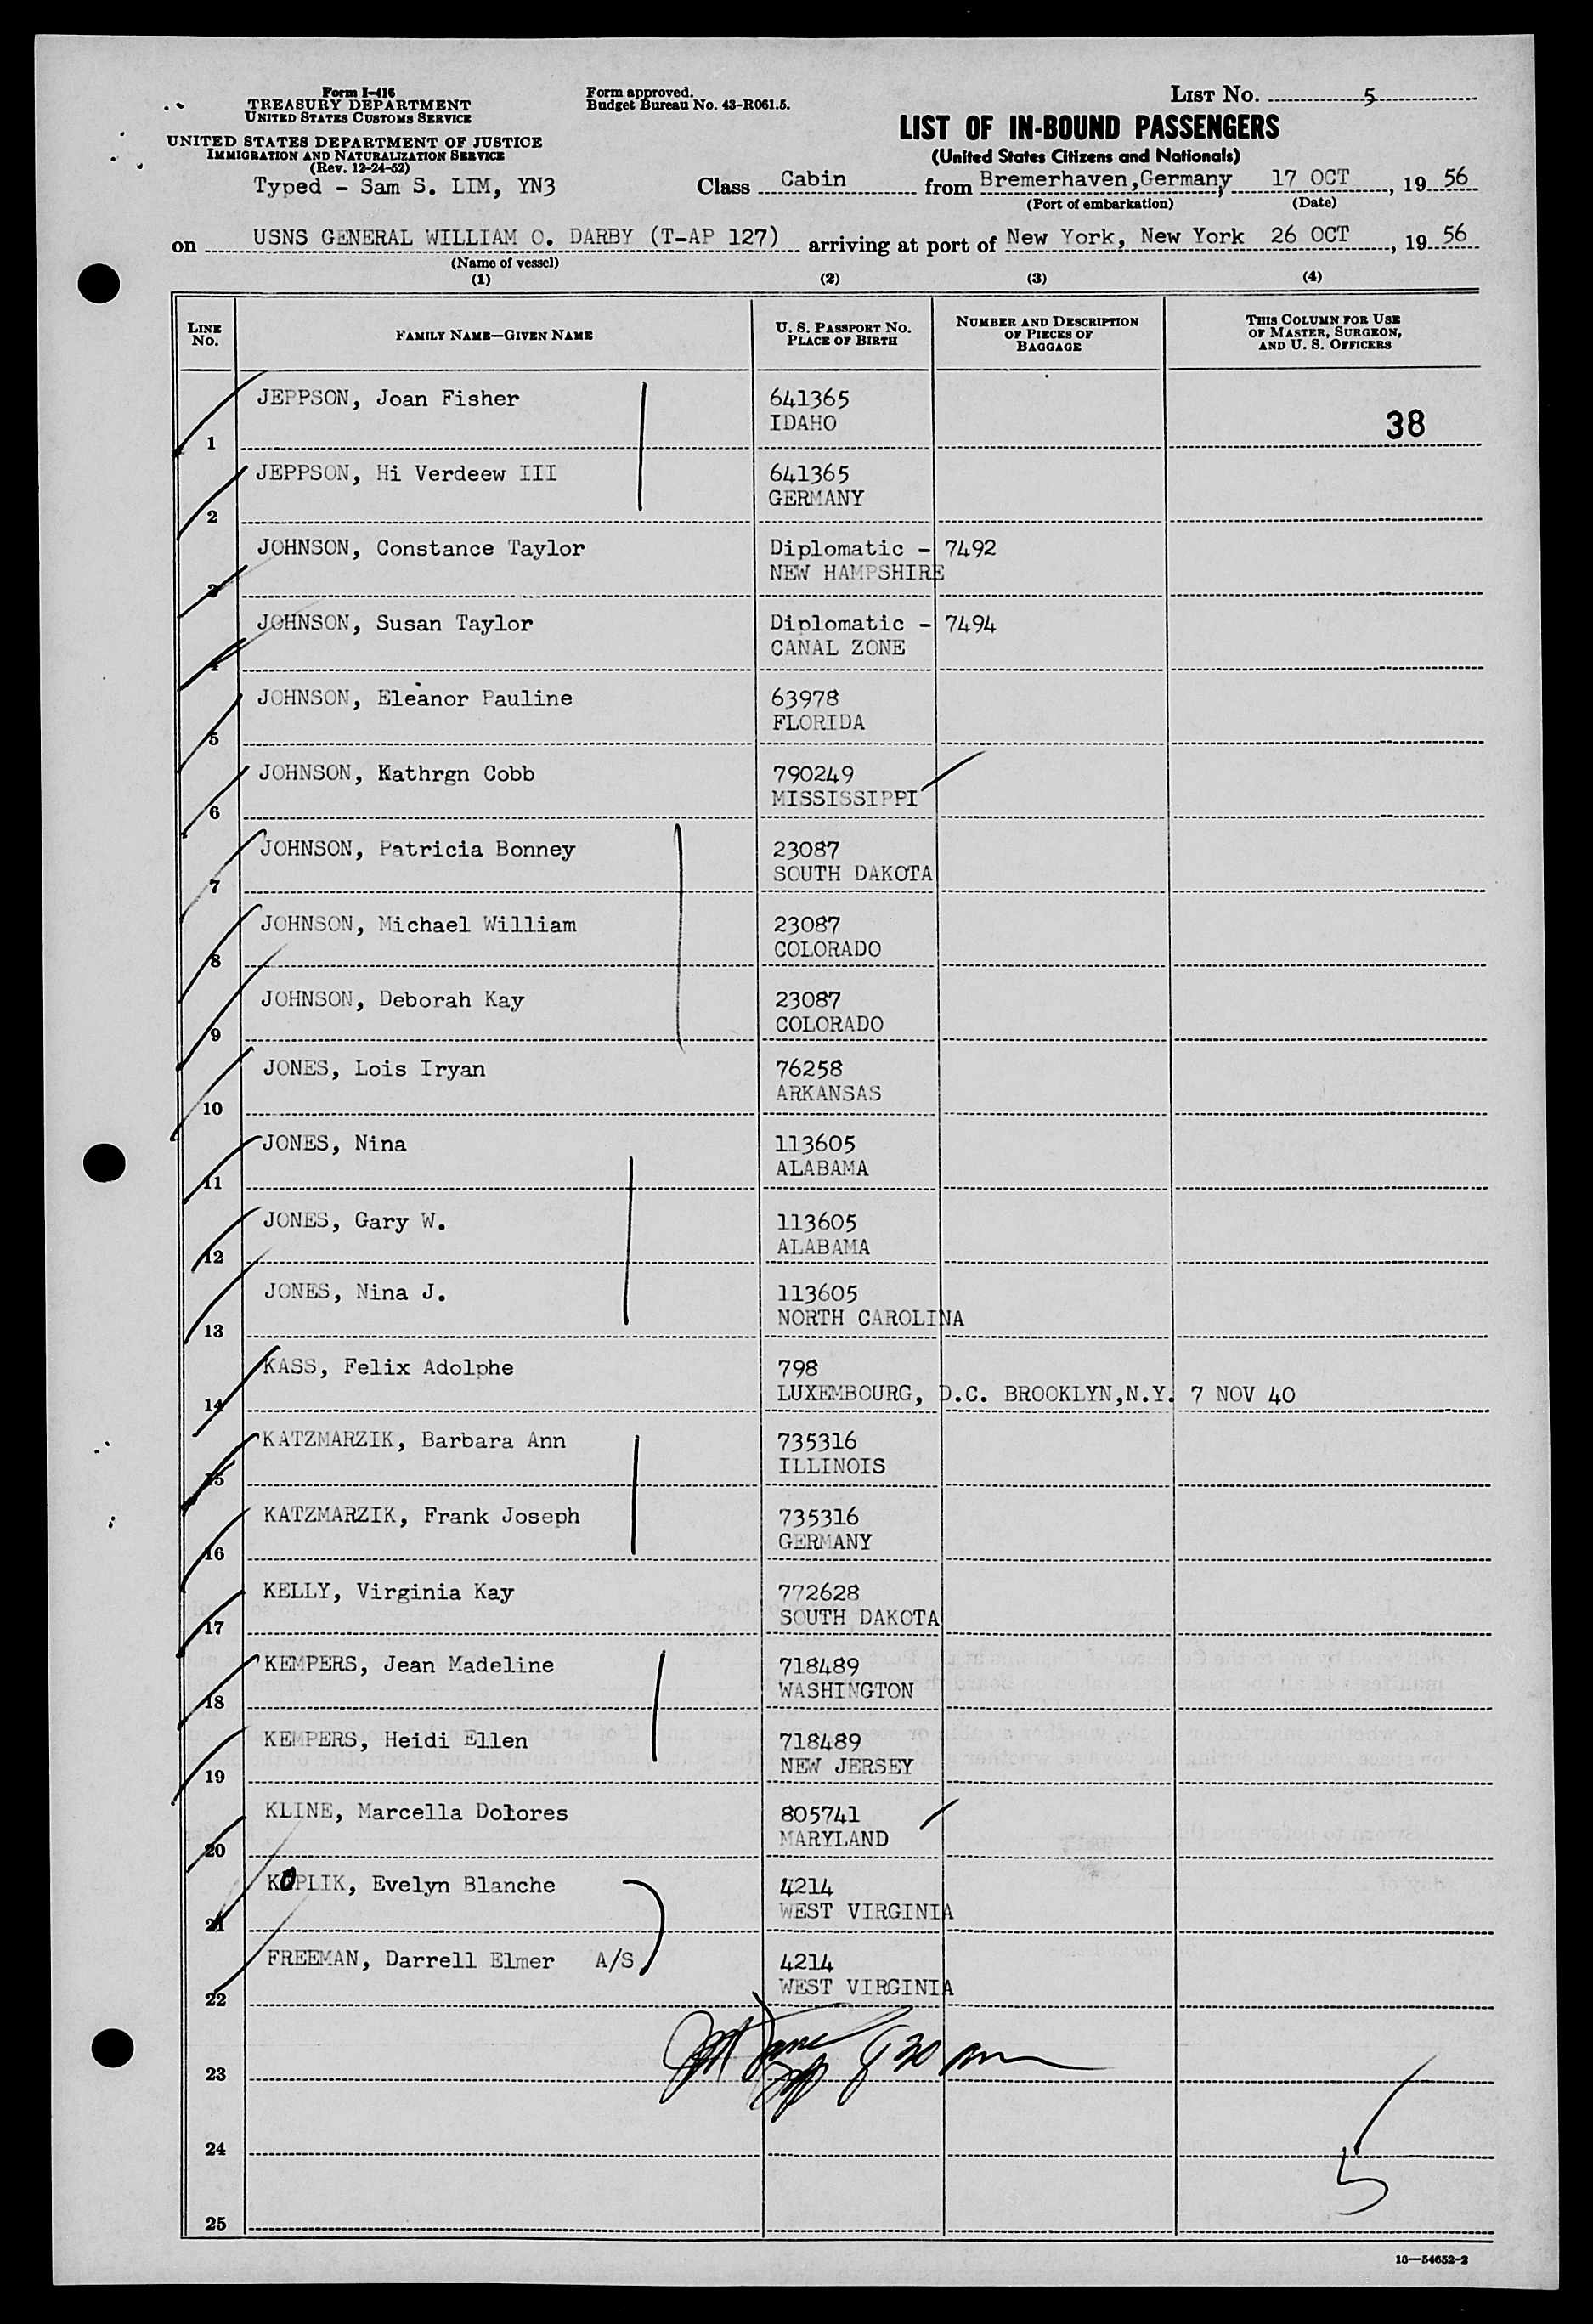 Form I-416
TREASURY DEPARTMENT
UNITED STATES CUSTOMS SERVICE
UNITED STATES DEPARTMENT OF JUSTICE
IMMIGRATION AND NATURALIZATION SERVICE
(Rev. 12-24-52)
Typed - Sam S. LIM, YN3
Form approved.
Budget Bureau No. 43-R061.5.
LIST NO. 5
LIST OF IN-BOUND PASSENGERS
(United States Citizens and Nationals)
Class Cabin from Bremerhaven,Germany 17 OCT, 19 56
(Port of embarkation) (Date)
on USNS GENERAL WILLIAM O. DARBY (T-AP 127) arriving at port of New York, New York 26 OCT, 19 56
(Name of vessel)
(1) (2) (3) (4)
LINE NO. FAMILY NAME—GIVEN NAME U. S. PASSPORT NO. PLACE OF BIRTH NUMBER AND DESCRIPTION OF PIECES OF BAGGAGE THIS COLUMN FOR USE OF MASTER, SURGEON, AND U. S. OFFICERS
JEPPSON, Joan Fisher 641365
1 IDAHO 38
JEPPSON, Hi Verdeew III 641365
2 GERMANY
JOHNSON, Constance Taylor Diplomatic - 7492
3 NEW HAMPSHIRE
JOHNSON, Susan Taylor Diplomatic - 7494
4 CANAL ZONE
JOHNSON, Eleanor Pauline 63978
5 FLORIDA
JOHNSON, Kathrgn Cobb 790249
6 MISSISSIPPI
JOHNSON, Patricia Bonney 23087
7 SOUTH DAKOTA
JOHNSON, Michael William 23087
8 COLORADO
JOHNSON, Deborah Kay 23087
9 COLORADO
JONES, Lois Iryan 76258
10 ARKANSAS
JONES, Nina 113605
11 ALABAMA
JONES, Gary W. 113605
12 ALABAMA
JONES, Nina J. 113605
13 NORTH CAROLINA
KASS, Felix Adolphe 798
14 LUXEMBOURG, D.C. BROOKLYN,N.Y. 7 NOV 40
KATZMARZIK, Barbara Ann 735316
15 ILLINOIS
KATZMARZIK, Frank Joseph 735316
16 GERMANY
KELLY, Virginia Kay 772628
17 SOUTH DAKOTA
KEMPERS, Jean Madeline 718489
18 WASHINGTON
KEMPERS, Heidi Ellen 718489
19 NEW JERSEY
KLINE, Marcella Dolores 805741
20 MARYLAND
KOPLIK, Evelyn Blanche 4214
21 WEST VIRGINIA
FREEMAN, Darrell Elmer A/S 4214
22 WEST VIRGINIA
830 am
23
24
5
25
16—54652-2